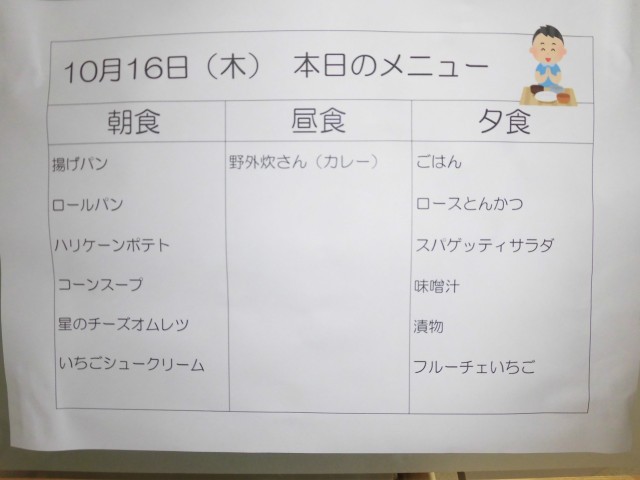 10月16日（木）　本日のメニュー
朝食
揚げパン
ロールパン
ハリケーンポテト
コーンスープ
星のチーズオムレツ
いちごシュークリーム
昼食
野外炊さん（カレー）
夕食
ごはん
ロースとんかつ
スパゲッティサラダ
味噌汁
漬物
フルーチェいちご